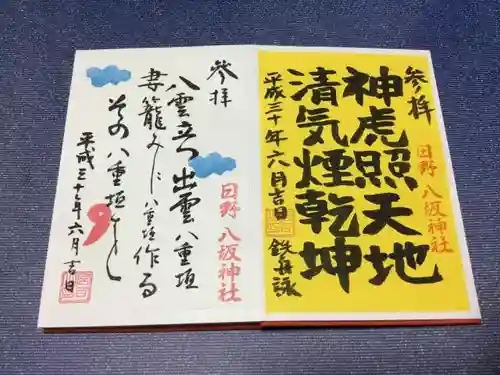 参拝
神虎照天地
清気煙乾坤
平成三十年六月吉日
鉄舟詠
日野 八坂神社
参拝
八雲立つ 出雲八重垣
妻籠みに 八重垣作る
その八重垣を
平成三十年六月吉日
日野 八坂神社